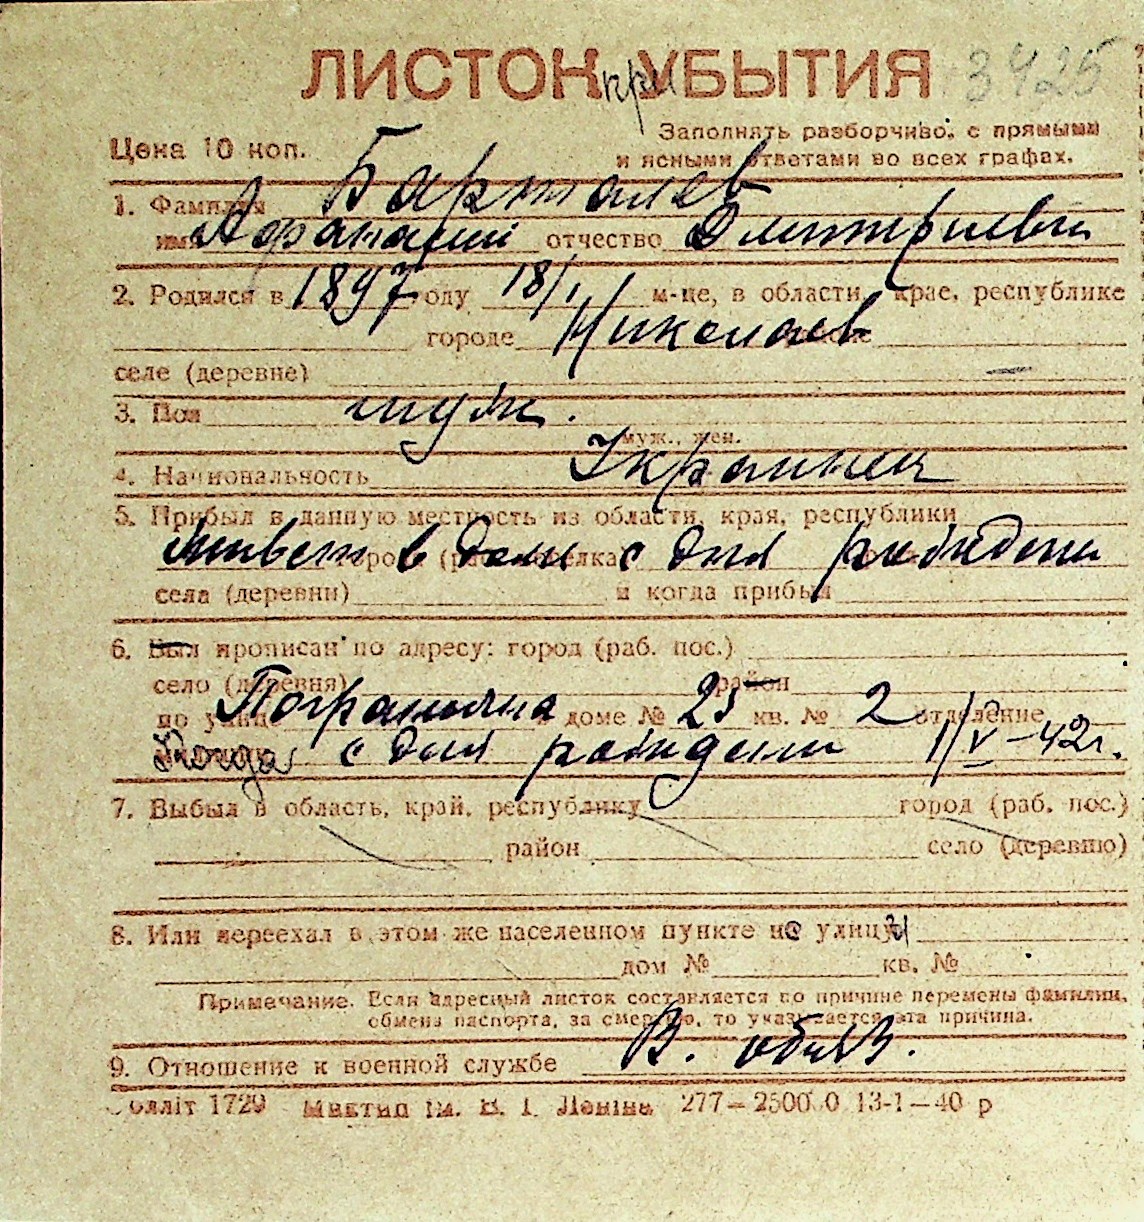 ЛИСТОК при УБЫТИЯ 3425
Цена 10 коп.
Заполнять разборчиво, с прямыми
и ясными ответами во всех графах.
1. Фамилия Барталев
имя Афанасий отчество Дмитриевич
2. Родился в 1897 году 18/I м-це, в области, крае, республике
городе Николаев
селе (деревне) —
3. Пол муж.
муж., жен.
4. Национальность Украинец
5. Прибыл в данную местность из области, края, республики
живет в доме с дня рождения
села (деревни) и когда прибыл
6. Был прописан по адресу: город (раб. пос.)
село (деревня) район
по улице Погранична доме № 25 кв. № 2 отделение
Когда с дня рождени 1/V–42г.
7. Выбыл в область, край, республику город (раб. пос.)
район село (деревню)
8. Или переехал в этом же населенном пункте на улицу
дом № кв. №
Примечание. Если адресный листок составляется по причине перемены фамилии,
обмена паспорта, за смертью, то указывается эта причина.
9. Отношение к военной службе В. обяз.
1729 ім. В. І. Леніна 277—2500 0 13-1—40 р